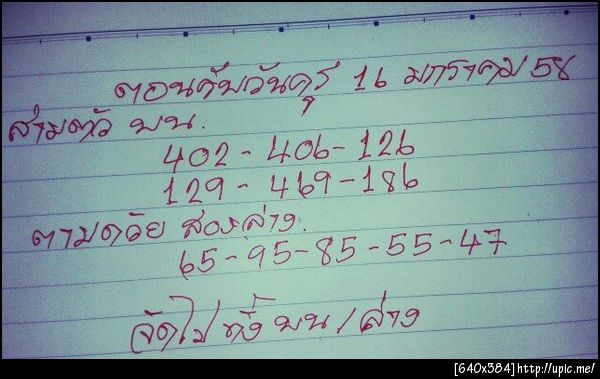 ตอนรับวันครู 16 มกราคม 58
สามตัว บน.
402 - 406 - 126
129 - 469 - 186
ตามด้วย สองล่าง.
65 - 95 - 85 - 55 - 47
จัดไป ทั้ง บน / ล่าง
[640x384]http://upic.me/